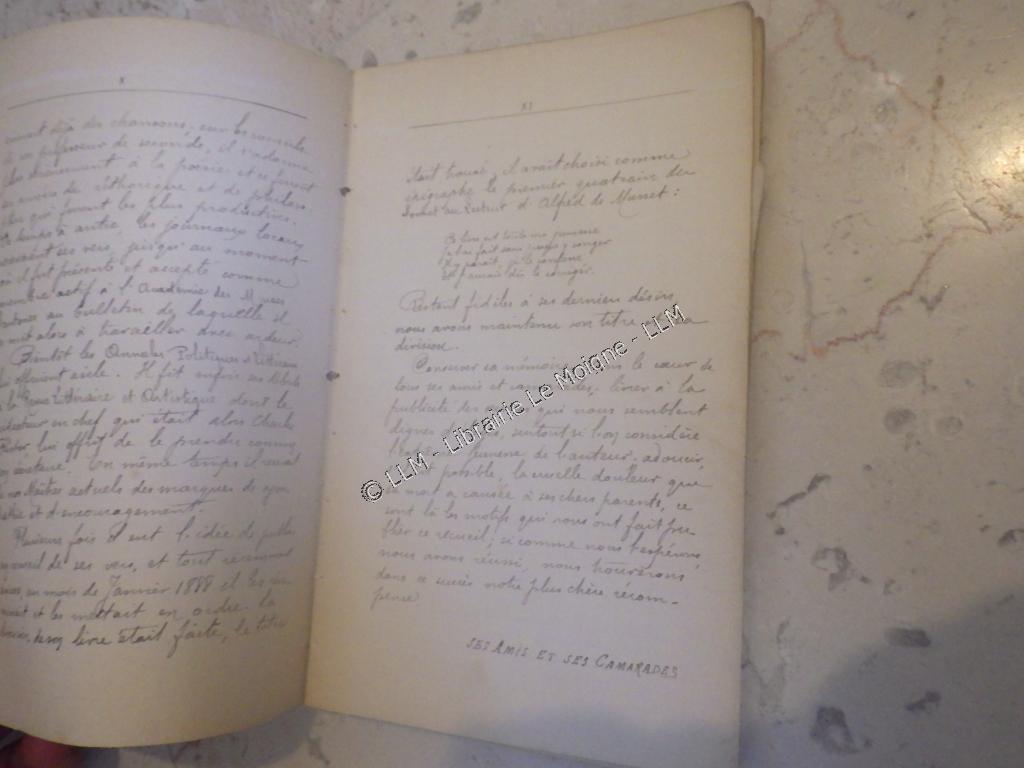 X
déjà des chansons, sur les conseils
professeur de seconde, il s'adonna
à la poésie et ce furent
de réthorique et de philoso-
qui furent les plus productives.
à autre, les journaux locaux
ses vers, jusqu'au moment
il fut présenté et accepté comme
membre actif à l'Académie des Muses
au bulletin de laquelle il
mit alors à travailler avec ardeur.
Bientôt les Annales Politiques et Littéraires
asile. Il fit enfin ses débuts
Littéraire et Artistique dont le
rédacteur en chef qui était alors Charles
lui offrit de le prendre comme
En même temps il
nos Maîtres actuels des marques de sym-
et d'encouragement.
Plusieurs fois il eut l'idée de publier
recueil de ses vers, et tout récemment
au mois de Janvier 1888 il les
et les mettait en ordre. La
livre était faite, le titre
XI
était trouvé, il avait choisi comme
épigraphe le premier quatrain du
Sonnet au Lecteur d'Alfred de Musset :
Ce livre est toute ma jeunesse
Je l'ai fait sans presque y songer
Il y paraît, je le confesse
Et j'aurais dû le corriger.
Restant fidèles à ses derniers désirs
nous avons maintenu son titre et sa
division.
Conserver sa mémoire dans le cœur de
tous ses amis et camarades, livrer à la
publicité des qui nous semblent
dignes surtout si l'on considère
jeunesse de l'auteur, adoucir,
possible, la cruelle douleur que
sa mort a causée à ses chers parents, ce
sont là les motifs qui nous ont fait pu-
blier ce recueil; si comme nous l'espérons,
nous avons réussi, nous trouverons
dans ce succès notre plus chère récom-
pense
SES AMIS ET SES CAMARADES
© LLM - Librairie Le Moigne - LLM